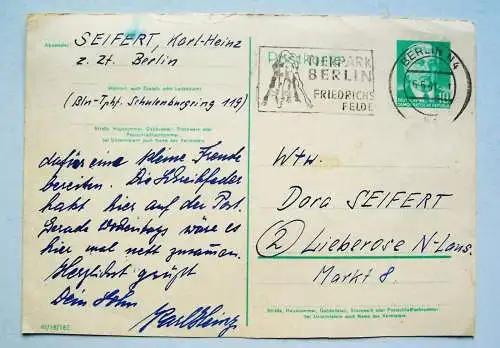 Absender:
SEIFERT, Karl-Heinz
z. Zt. Berlin
Wohnort, auch Zustell- oder Leitpostamt
(Bln-Tphf. Schulenburgring 119)
Straße, Hausnummer, Gebäudeteil, Stockwerk oder
Postschließfachnummer
bei Untermietern auch Name des Vermieters
eine kleine Freude
bereiten. Die Schreibfeder
hakt hier auf der Post.
Gerade wäre es
hier mal nett zusammen.
Herzlichst grüßt
Dein Sohn
Karl Heinz
Postkarte
TIERPARK
BERLIN
FRIEDRICHS
FELDE
BERLIN
10
Wtw.
Dora SEIFERT
2 Lieberose N-Laus.
Markt 8.
Straße, Hausnummer, Gebäudeteil, Stockwerk oder Postschließfachnummer
bei Untermietern auch Name des Vermieters